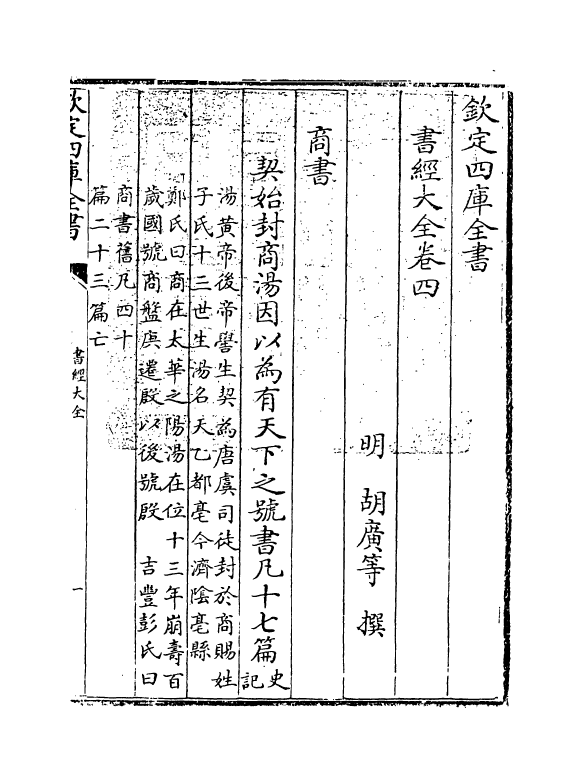 欽定四庫全書
書經大全卷四
明　胡廣等　撰
商書
契始封商湯因以為有天下之號書凡十七篇史記
湯黃帝後帝嚳生契為唐虞司徒封於商賜姓
子氏十三世生湯名天乙都亳今濟隂亳縣
鄭氏曰商在太華之陽湯在位十三年崩壽百
歲國號商盤庚遷殷以後號殷　吉豐彭氏曰
商書舊凡四十
篇二十三篇亡
欽定四庫全書
書經大全
一